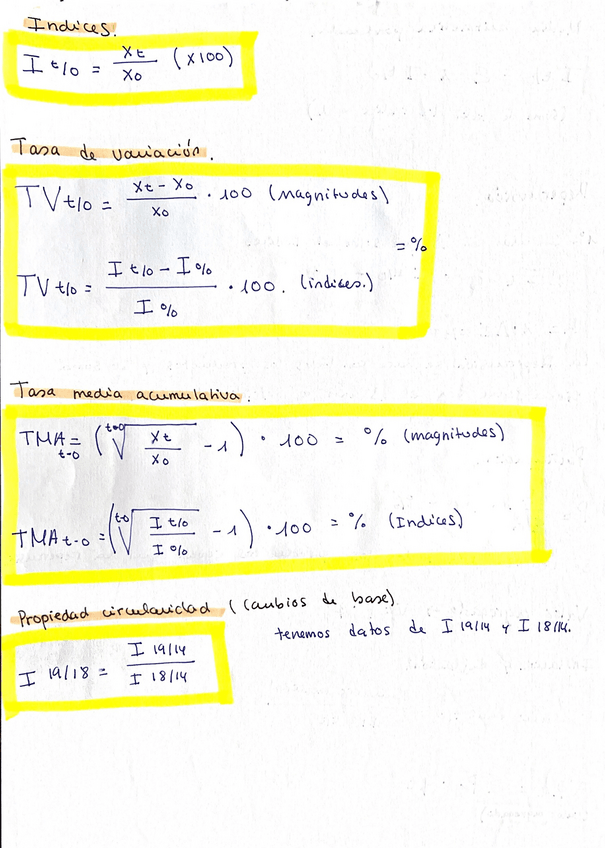 Indices.
I t/0 = Xt/X0 (x100)
Tasa de variación.
TV t/0 = Xt - X0 / X0 · 100 (magnitudes)
= %
TV t/0 = I t/0 - I 0/0 / I 0/0 · 100. (indices.)
Tasa media acumulativa.
TMA t-0 = ( t-0√ Xt/X0 - 1 ) · 100 = % (magnitudes)
TMA t-0 = ( t-0√ I t/0 / I 0/0 - 1 ) · 100 = % (Indices)
Propiedad circularidad (cambios de base)
tenemos datos de I 19/14 y I 18/14.
I 19/18 = I 19/14 / I 18/14